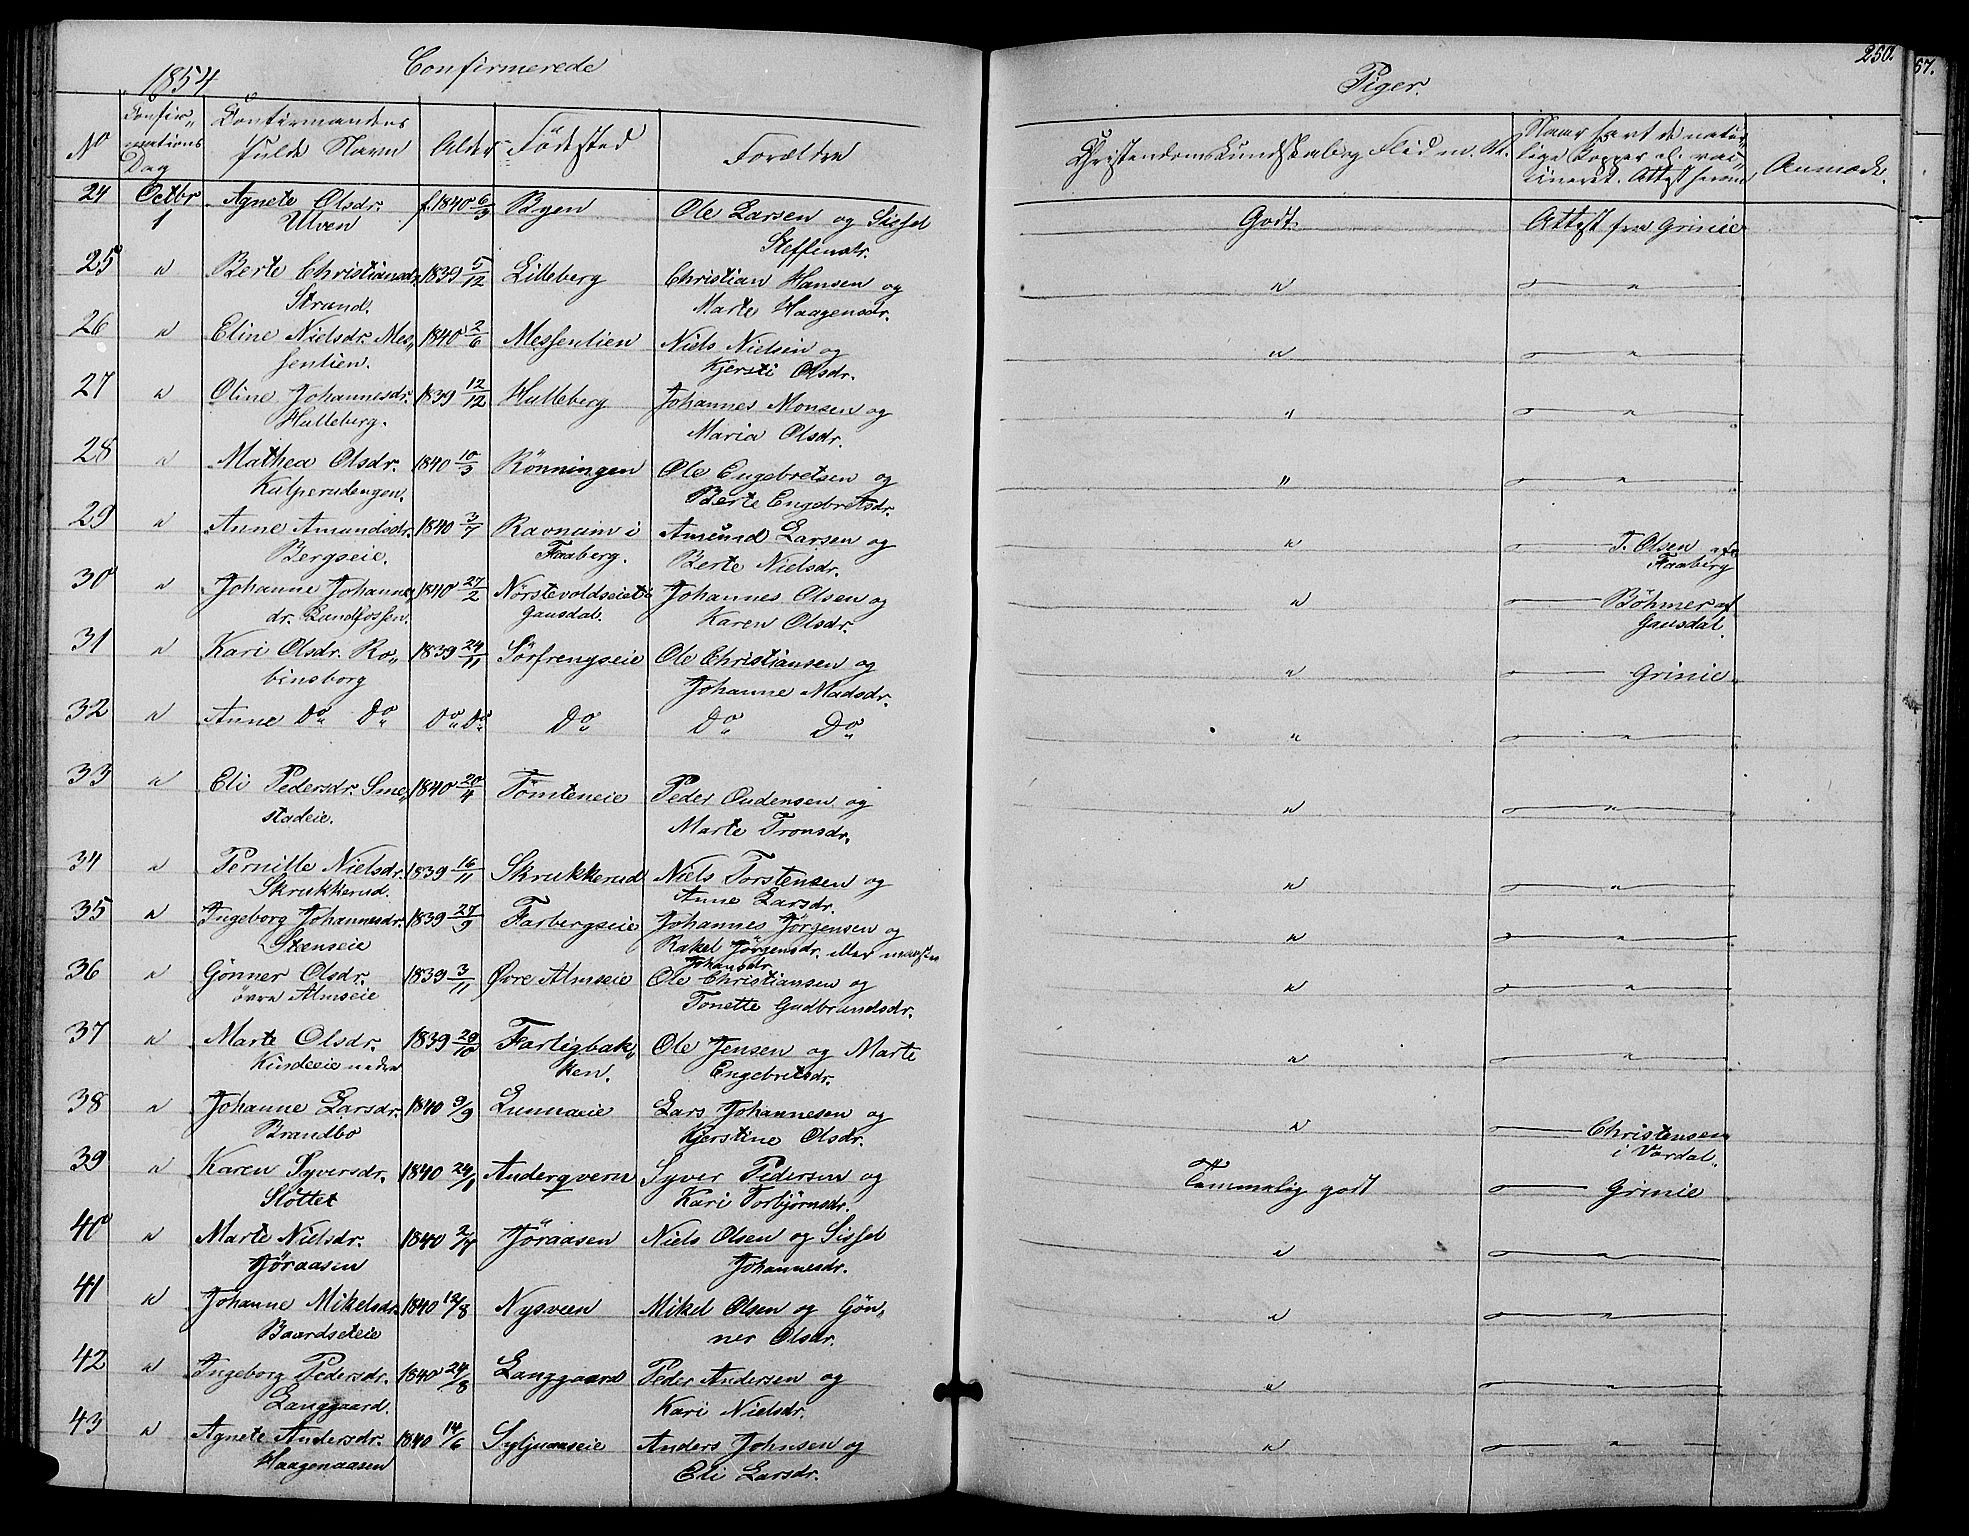 1854 Confirmerede
Piger. 250.
57.
No Confir„ Confirmandens Alder Födested Forældre Christendoms Kundskab og Flid m. M. Naar havt de natur„
mations fulde Navn lige Kopper el. vac„ Anmærk.
Dag cineret. Attest herom
24 Octbr Agnete Olsdr. f. 1840 6/3 Byen Ole Larsen og Sissel Godt. Attest fra Grinie
1 Ulven Steffensdr.
25 " Berte Christiansdr. 1839 5/12 Lilleberg Christian Hansen og " "
Strand. Marte Haagensdr.
26 " Eline Nielsdr. Mes„ 1840 2/6 Messenlien Niels Nielsen og " "
senlien. Kjersti Olsdr.
27 " Oline Johannesdr. 1839 12/12 Hulleberg Johannes Monsen og " "
Hulleberg. Maria Olsdr.
28 " Mathea Olsdr. 1840 10/3 Rönningen Ole Engebretsen og " "
Kulperudengen. Berte Engebretsdr.
29 " Anne Amundsdr. 1840 3/7 Ravnum i Amund Larsen og " T. Olsen af
Bergseie. Faaberg. Berte Nielsdr. Faaberg
30 " Johanne Johannes 1840 27/2 Nörstevoldseiet i Johannes Olsen og " Böhmer af
dr. Lundfossen. Gausdal. Karen Olsdr. Gausdal.
31 " Kari Olsdr. Ro„ 1839 24/11 Sörfrengseie Ole Christiansen og " Grinie
binsborg Johanne Madsdr.
32 " Anne Do Do Do Do Do Do Do " "
33 " Eli Pedersdr. Sme„ 1840 20/4 Tömteneie Peder Oudensen og " "
stadeie. Marte Tronsdr.
34 " Pernille Nielsdr. 1839 16/11 Skrukkerud Niels Torstensen og " "
Skrukkerud. Anne Larsdr.
35 " Ingeborg Johannesdr. 1839 27/9 Farbergseie Johannes Jörgensen og " "
Stenseie Rakel Jörgensdr. eller
Johansdr.
36 " Gönner Olsdr. 1839 3/11 Øvre Almseie Ole Christiansen og " "
övre Almseie Tonette Gudbrandsdr.
37 " Marte Olsdr. 1839 29/10 Farligbak„ Ole Jensen og Marte " "
nedre ken. Engebretsdr.
38 " Johanne Larsdr. 1840 9/9 Lunnaeie Lars Johannesen og " Christensen
Brandbo Kjerstine Olsdr. i Vardal.
39 " Karen Syversdr. 1840 24/1 Anderqvern Syver Pedersen og Temmelig godt Grinie
Slöttet Kari Torbjörnsdr.
40 " Marte Nielsdr. 1840 2/7 Jöraasen Niels Olsen og Sissel " "
Jöraasen Johannesdr.
41 " Johanne Mikelsdr. 1840 12/8 Nysveen Mikel Olsen og Gön„ " "
Baardseteie ner Olsdr.
42 " Ingeborg Pedersdr. 1840 24/8 Langgaard Peder Andersen og " "
Langgaard. Kari Nielsdr.
43 " Agnete Andersdr. 1840 14/6 Syljuaaseie Anders Johnsen og " "
Haagenaasen Eli Larsdr.